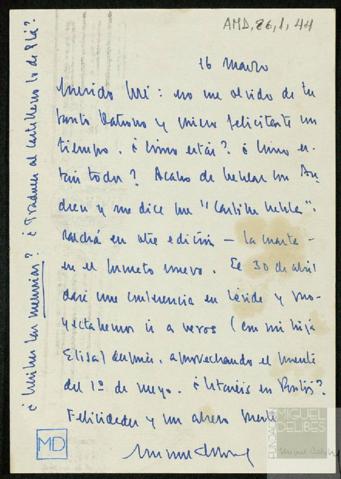 AMD, 86, 1, 44
16 marzo
Querido José: no me olvido de tu
Santo Patrono y quiero felicitarte con
tiempo. ¿Cómo estás? ¿Cómo es-
táis todos? Acabo de hablar con An-
dreu y me dice que "Castilla habla"
saldrá en otra edición - la cuarta -
en el formato nuevo. El 30 de abril
daré una conferencia en Lérida y pro-
yectabamos ir a veros (con mi hija
Elisa) después, aprovechando el puente
del 1º de mayo. ¿Estaréis en
Felicidades y un abrazo fuerte
¿Escribes las memorias? ¿Traducen al castellano lo de Plá?
MD
MIGUEL
DELIBES